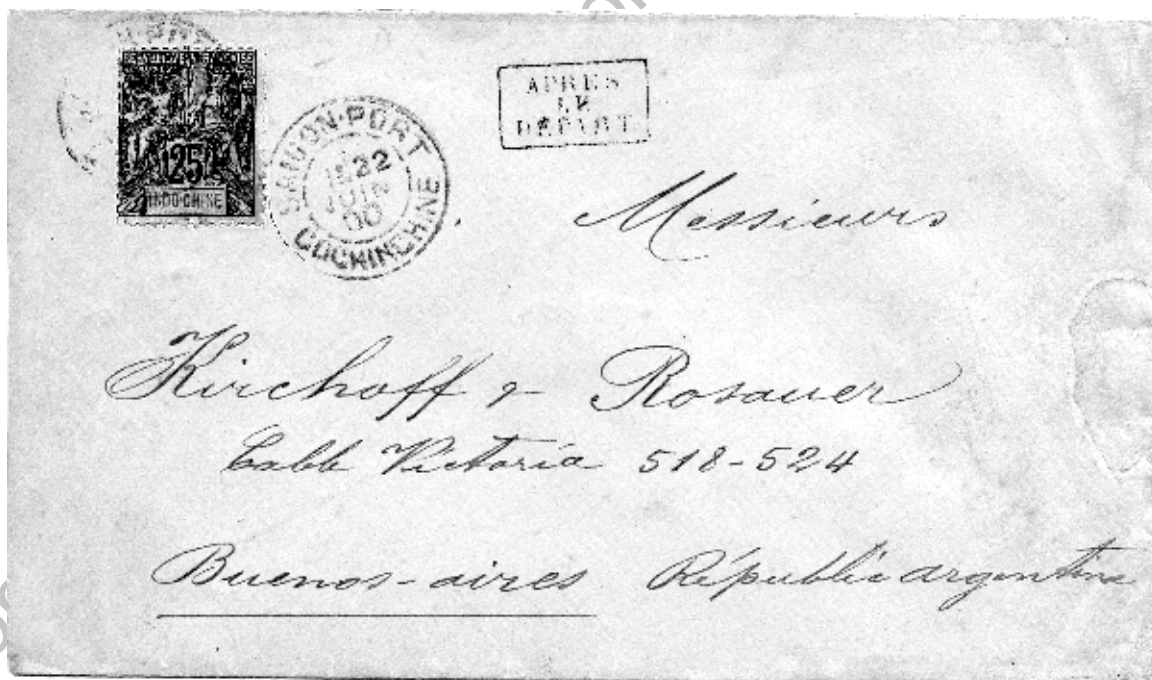 25
INDO-CHINE
SAIGON-PORT
22
JUIN
00
COCHINCHINE
APRES
LE
DÉPART
Messieurs
Kirchoff & Rosauer
Calle Victoria 518-524
Buenos-aires Républic argentine